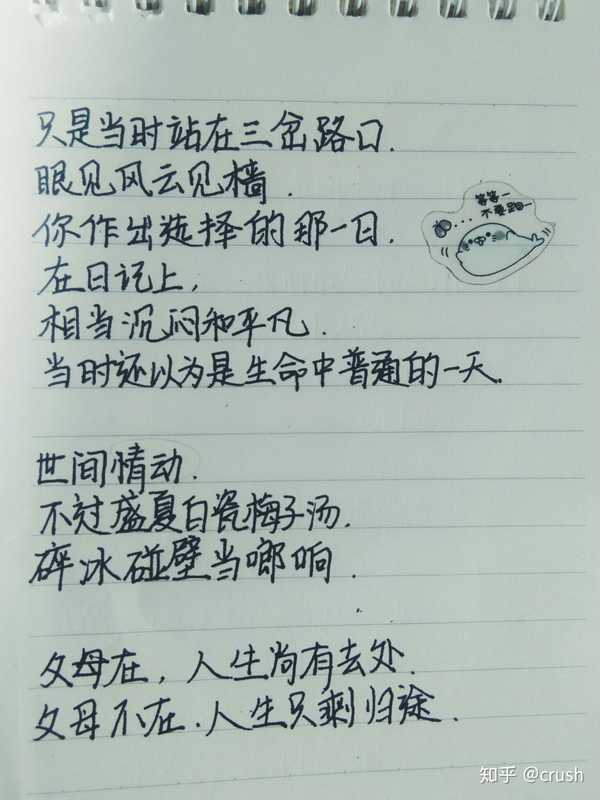 只是当时站在三岔路口.
眼见风云见樯.
你作出选择的那一日.
在日记上,
相当沉闷和平凡.
当时还以为是生命中普通的一天.
等等一
不要跑一
世间情动.
不过盛夏白瓷梅子汤.
碎冰碰壁当啷响.
父母在,人生尚有去处.
父母不在.人生只剩归途.
知乎 @crush